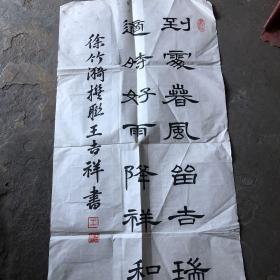 到處春風留吉瑞
適時好雨降祥和
徐竹漪撰聯王吉祥書